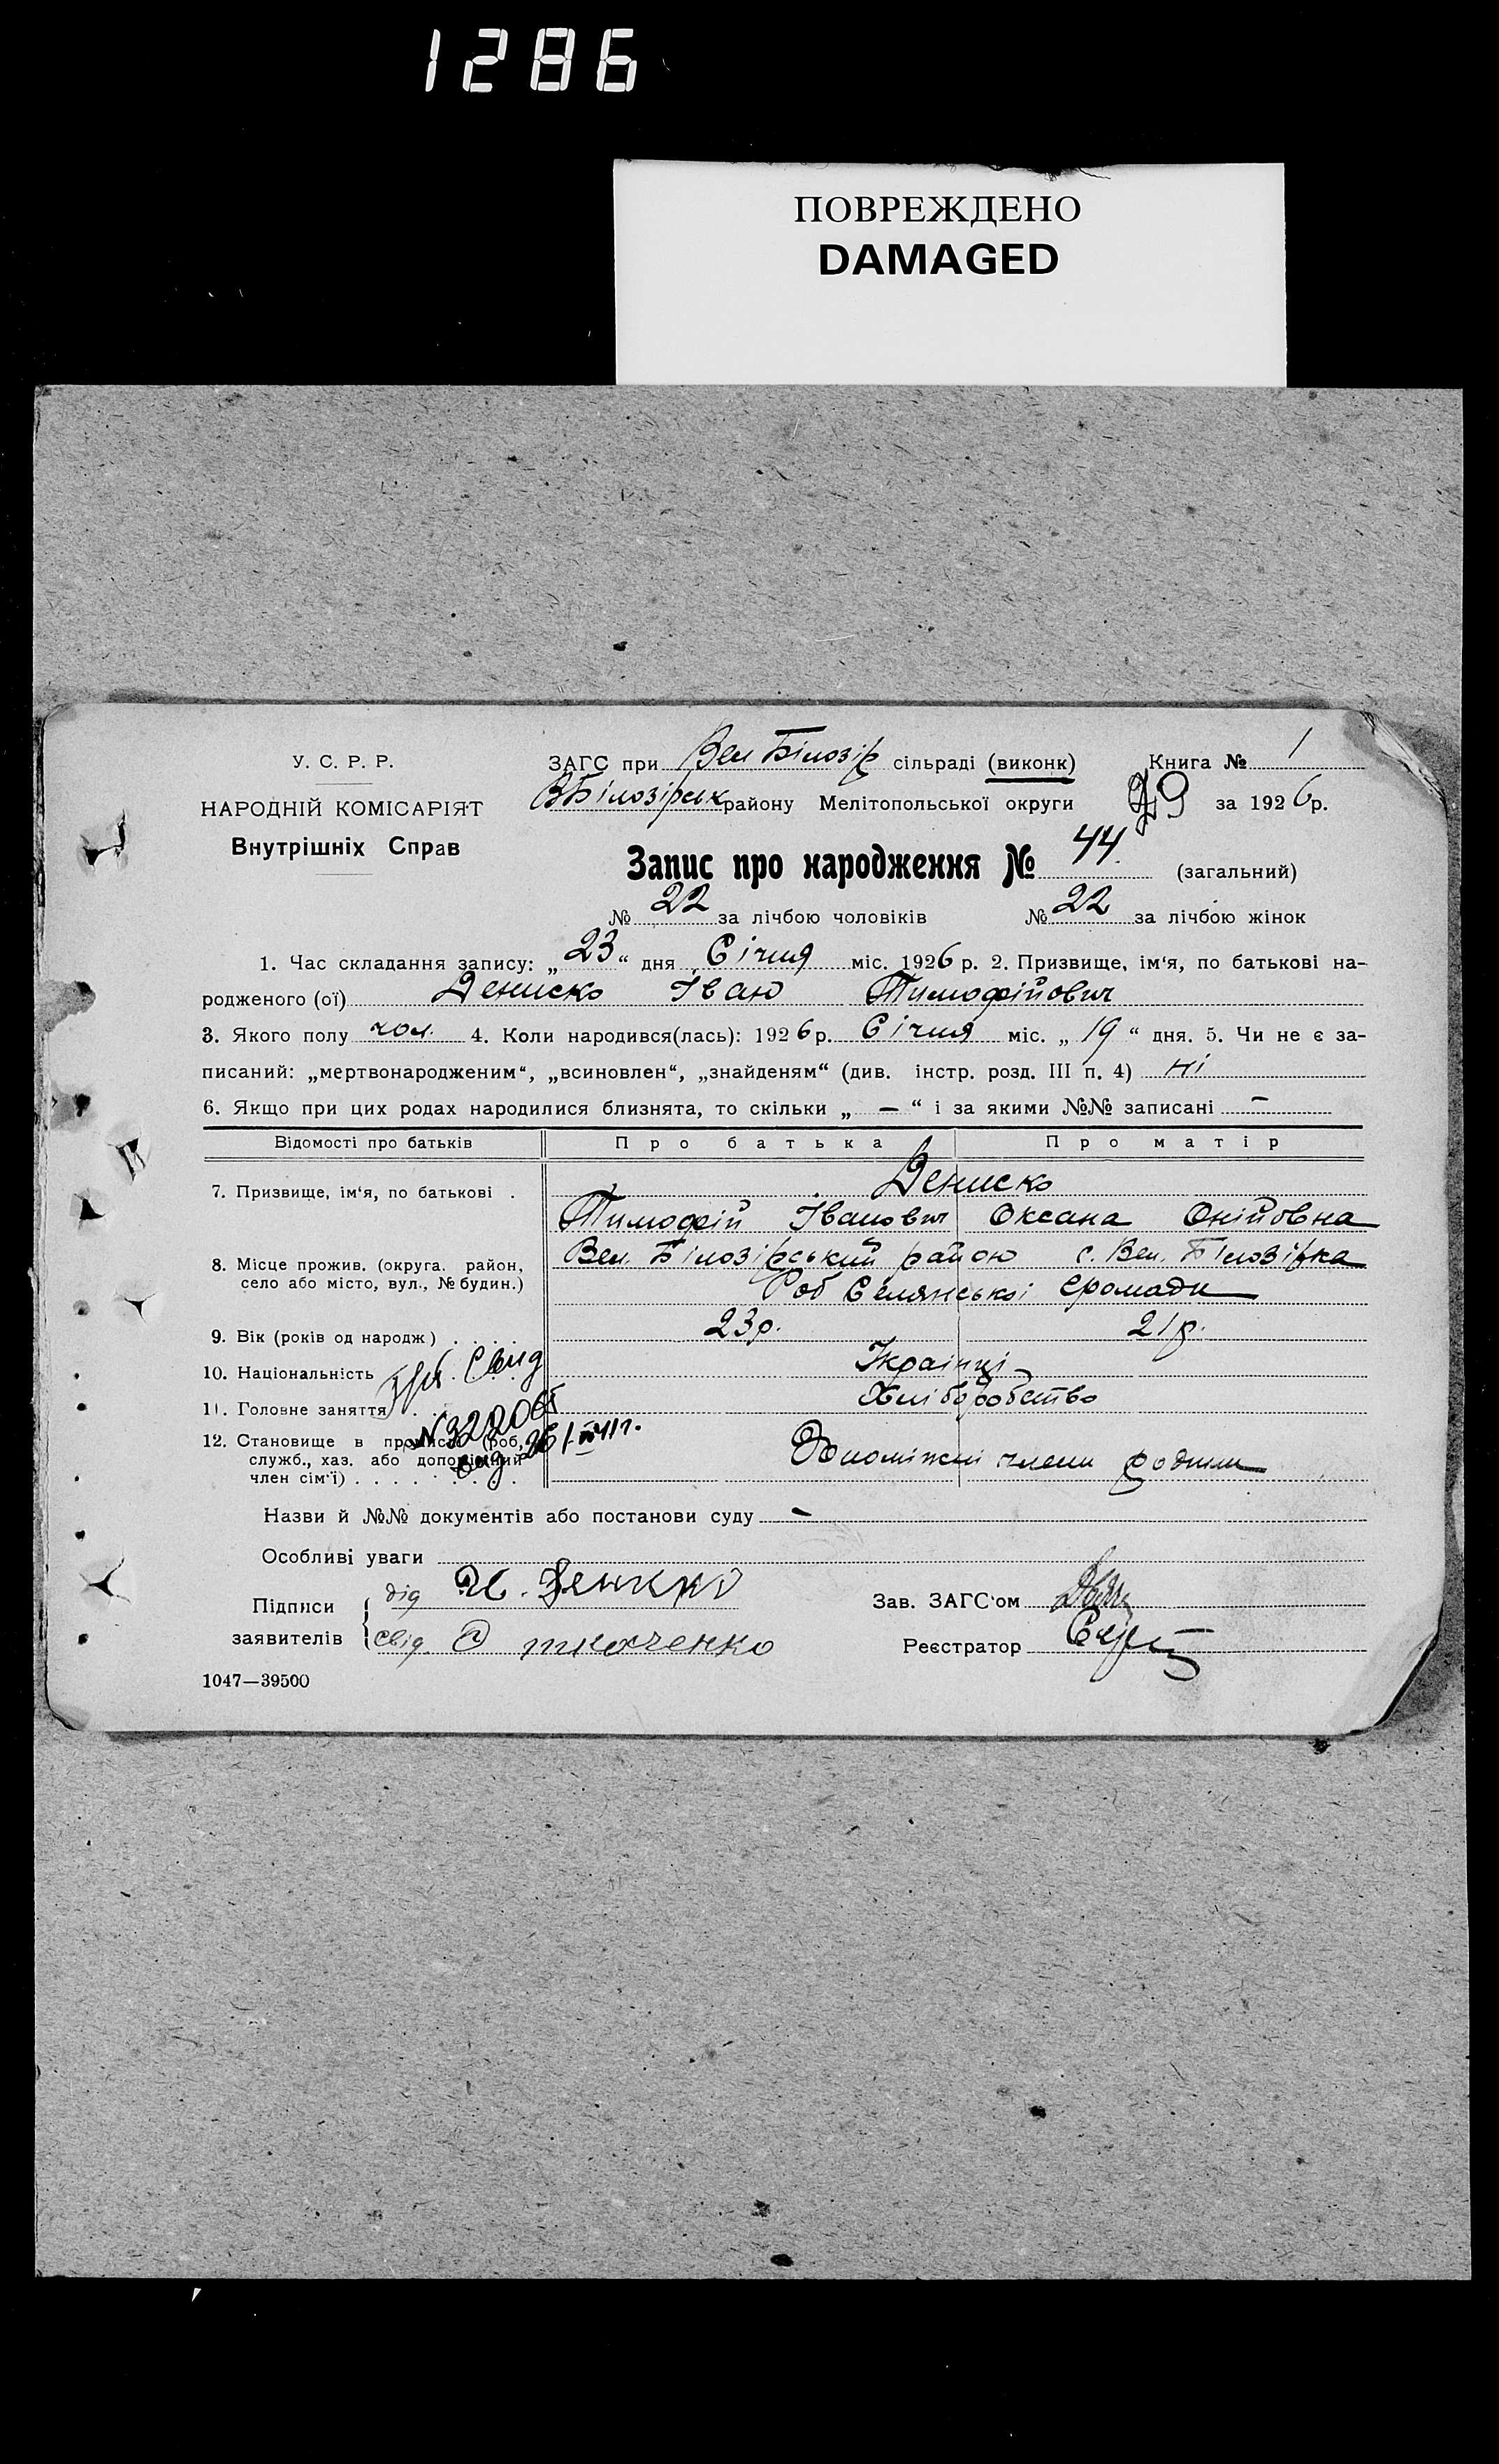 1286
ПОВРЕЖДЕНО
DAMAGED
У. С. Р. Р.
НАРОДНІЙ КОМІСАРІЯТ
Внутрішніх Справ
ЗАГС при Вел Білозір сільраді (виконк) Книга № 1
ВБілозірськ району Мелітопольської округи 49 за 1926 р.
Запис про народження № 44 (загальний)
№ 22 за лічбою чоловіків № 22 за лічбою жінок
1. Час складання запису: „23“ дня Січня міс. 1926 р. 2. Призвище, ім‘я, по батькові на-
родженого (ої) Дениско Іван Тимофійович
3. Якого полу чол. 4. Коли народився(лась): 1926 р. Січня міс. „19“ дня. 5. Чи не є за-
писаний: „мертвонародженим“, „всиновлен“, „знайденям“ (див. інстр. розд. III п. 4) ні
6. Якщо при цих родах народилися близнята, то скільки „ — “ і за якими №№ записані —
Відомості про батьків Про батька Про матір
Дениско
7. Призвище, ім‘я, по батькові .
Тимофій Іванович Оксана Онійовна
8. Місце прожив. (округа. район,
село або місто, вул., № будин.)
Вел. Білозірський район с. Вел. Білозірка
Роб Селянської громади
9. Вік (років од народж) . . . . 23р. 21р.
10. Національність Українці
11. Головне заняття Хліборобство
12. Становище в промислі (роб,
служб., хаз. або допоміжний
член сім‘ї) . . . . . . . .
Допоміжні члени родини
Назви й №№ документів або постанови суду —
Особливі уваги
Підписи
заявителів
дід И. Дениско
свід. О ткаченко
Зав. ЗАГС‘ом
Реєстратор
1047—39500